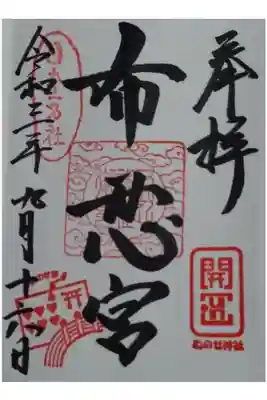 奉拝
開運
ぬのせ神社
布忍宮
令和三年 九月十六日